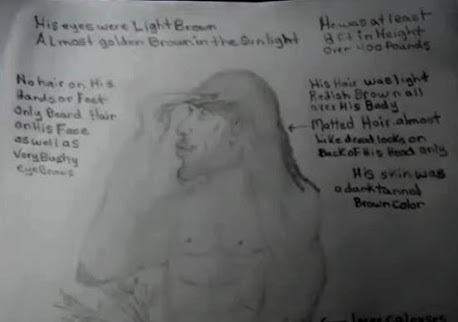 His eyes were Light Brown
Almost golden Brown in the Sunlight
He was at least
8 Ft in Height
over 400 Pounds
No hair on His
Hands or Feet
Only Beard Hair
on His Face
as well as
Very Bushy
eye Brows
His Hair was light
Redish Brown all
over His Body
Matted Hair, almost
Like dread locks on
Back of His Head only
His skin was
a dark tanned
Brown Color